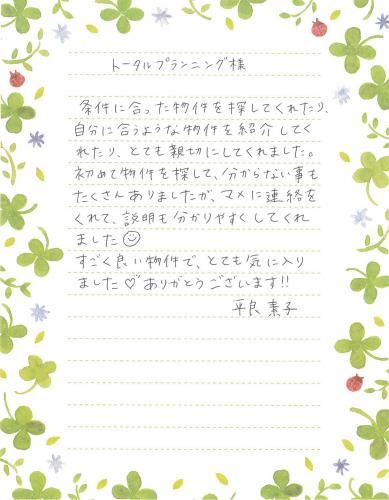 トータルプランニング様
条件に合った物件を探してくれたり、
自分に合うような物件を紹介してく
れたり、とても親切にしてくれました。
初めて物件を探して、分からない事も
たくさんありましたが、マメに連絡を
くれて、説明も分かりやすくしてくれ
ました☺
すごく良い物件で、とても気に入り
ました♡ありがとうございます!!
平良 素子